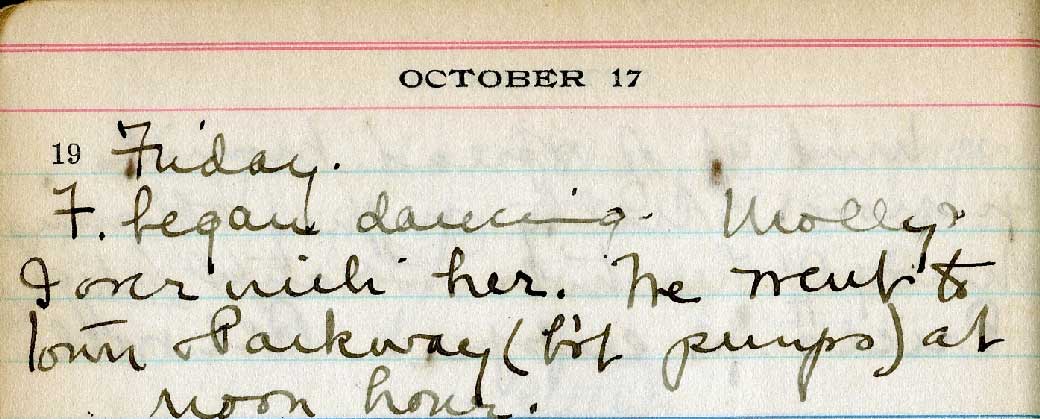 OCTOBER 17
19 Friday.
F. began dancing. Molly &
I over with her. We went to
town & Parkway (b't pumps) at
noon hour.